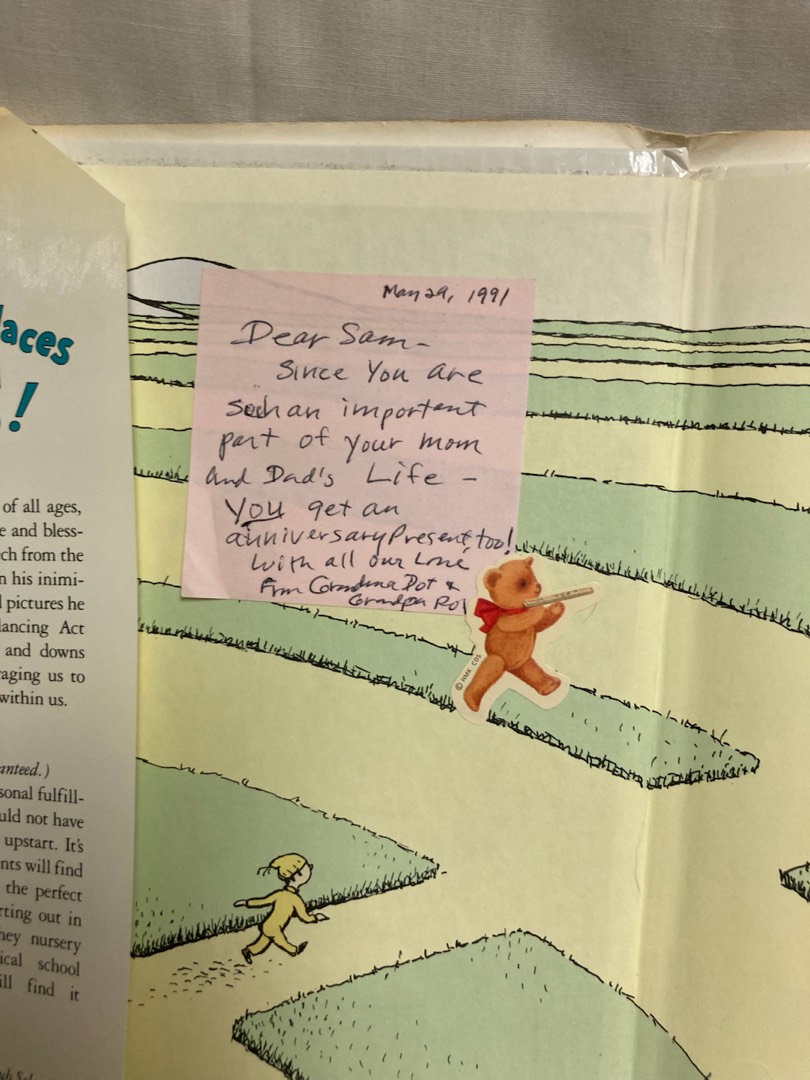 laces
!
of all ages,
e and bless-
ch from the
n his inimi-
d pictures he
lancing Act
and downs
raging us to
within us.
anteed.)
sonal fulfill-
uld not have
upstart. It's
nts will find
the perfect
rting out in
ney nursery
ical school
ill find it
May 29, 1991
Dear Sam-
Since You are
such an important
part of your mom
and Dad's Life -
You get an
anniversary Present too!
With all our Love
From Grandma Dot &
Grandpa Ro
© HMK. CDS